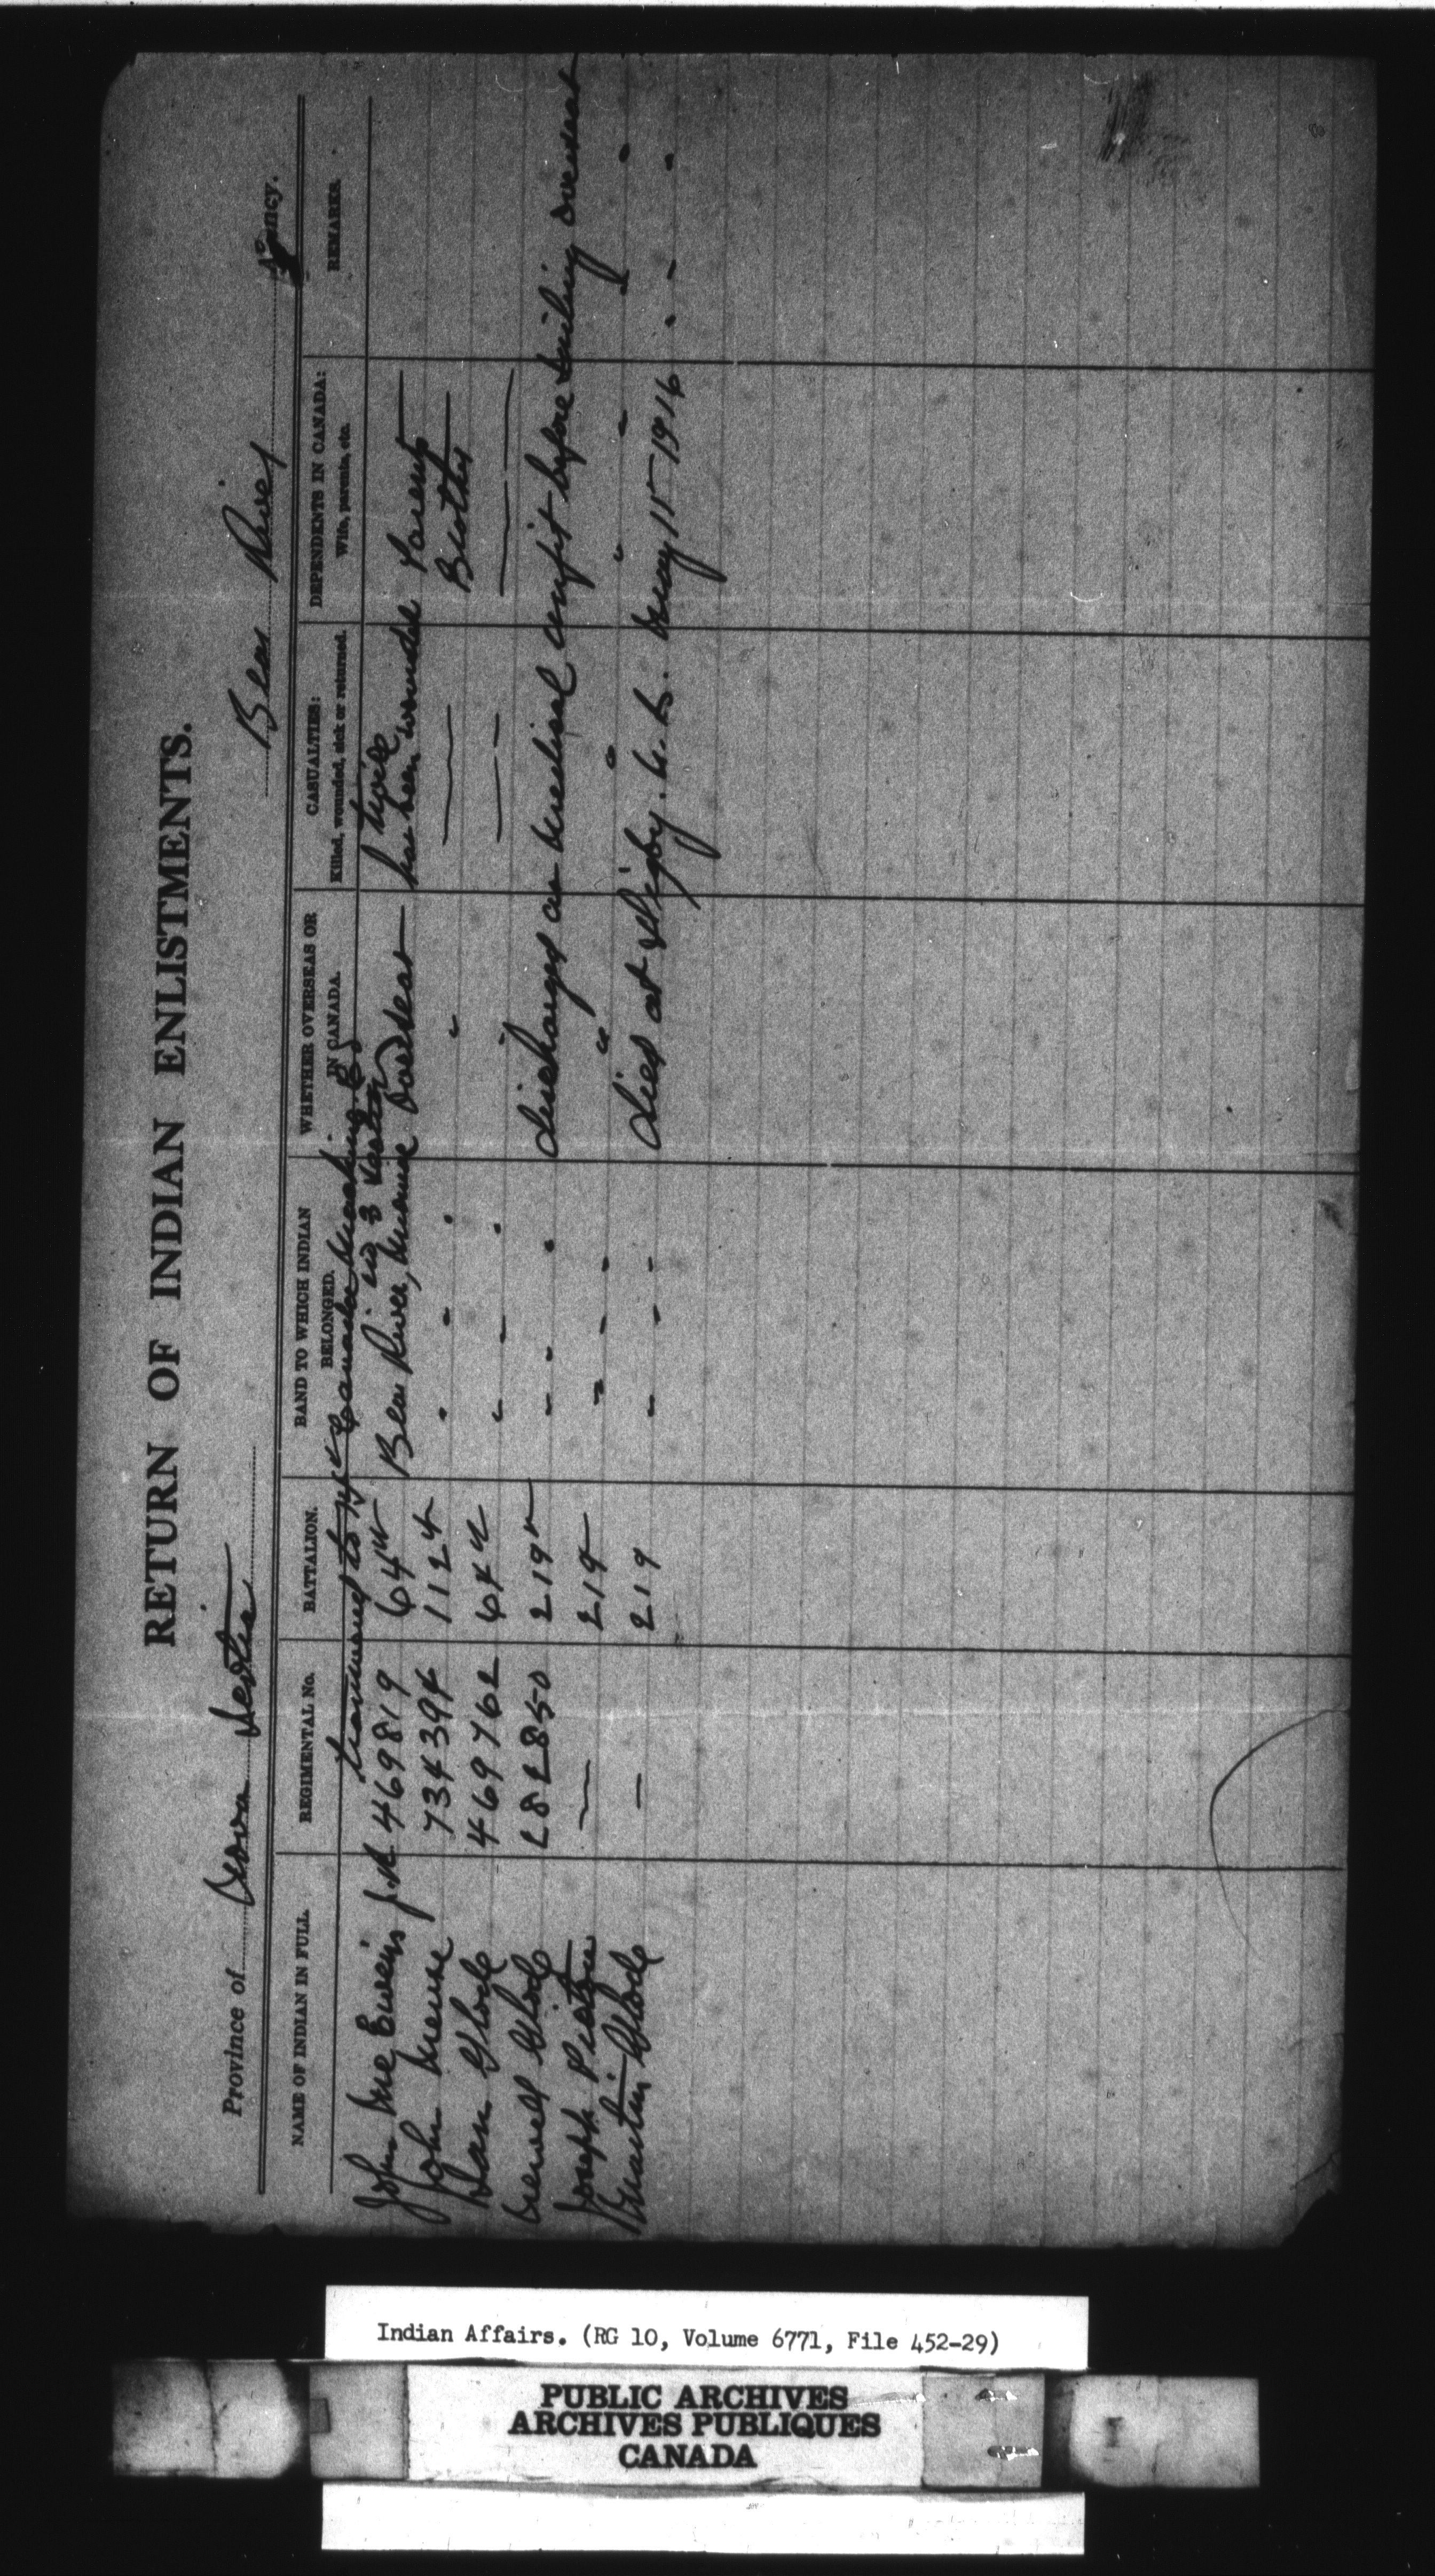 RETURN OF INDIAN ENLISTMENTS.
Province of Nova Scotia Bear River Agency.
NAME OF INDIAN IN FULL. REGIMENTAL No. BATTALION. BAND TO WHICH INDIAN BELONGED. WHETHER OVERSEAS OR IN CANADA. CASUALTIES: Killed, wounded, sick or returned. DEPENDENTS IN CANADA: Wife, parents, etc. REMARKS.
twice
John Mc Ewan 469819 64th Bear River, Overseas has been wounded Parents
John 734394 112th " " " " — Brother
Dan Glode 469762 64th " - " " — - - —
Newell Glode 282850 219th - - " discharged as medical unfit before sailing overseas
Joseph — 219 " - - " " " - " "
Martin Glode — 219 - - - Died at Digby. 15 1916 " - "
Indian Affairs. (RG 10, Volume 6771, File 452-29)
PUBLIC ARCHIVES
ARCHIVES PUBLIQUES
CANADA